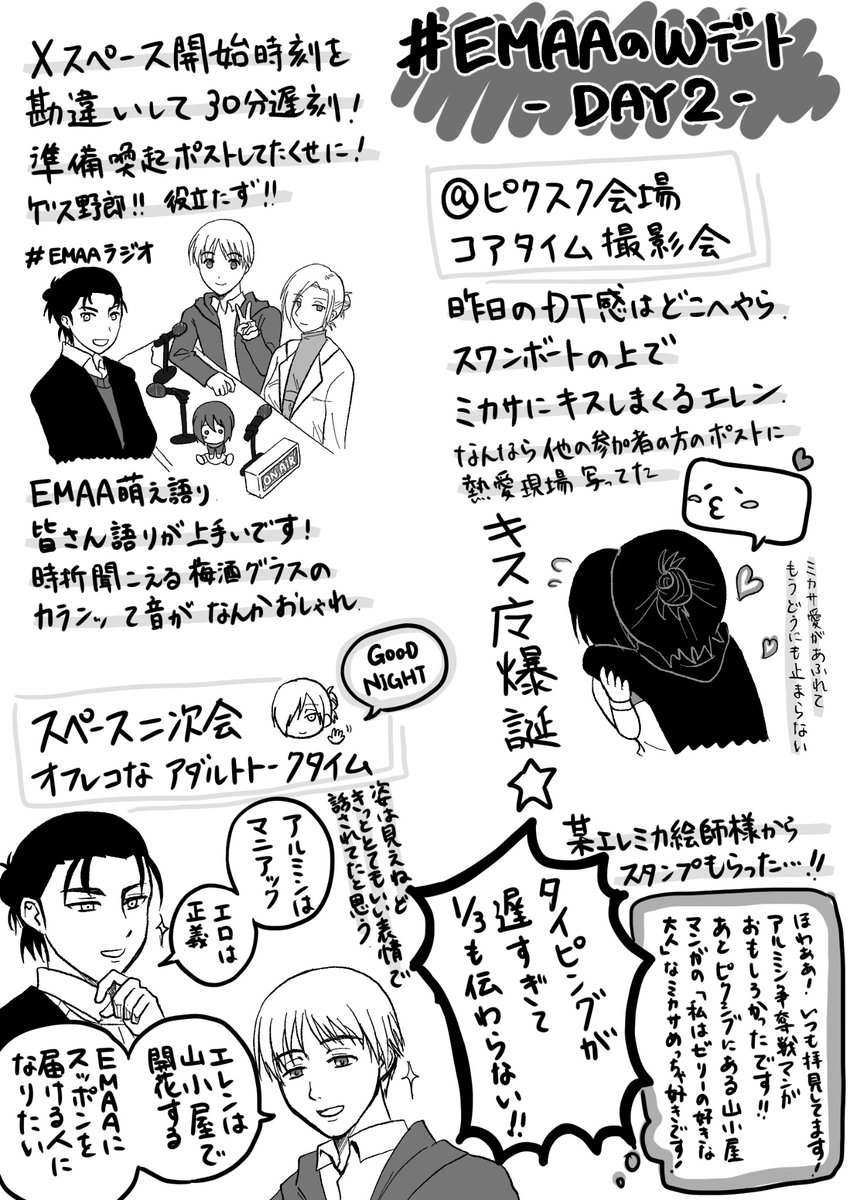 #EMAAのWデート
- DAY2 -
Xスペース開始時刻を
勘違いして30分遅刻!
準備喚起ポストしてたくせに!
ゲス野郎!! 役立たず!!
#EMAAラジオ
ON AIR
EMAA萌え語り
皆さん語りが上手いです!
時折聞こえる梅酒グラスの
カランッて音がなんかおしゃれ
@ピクスク会場
コアタイム撮影会
昨日のDT感はどこへやら
スワンボートの上で
ミカサにキスしまくるエレン
なんなら他の参加者の方のポストに
熱愛現場写ってた
キス魔爆誕☆
ミカサ愛があふれて
もうどうにも止まらない
スペース二次会
オフレコなアダルトトークタイム
GOOD
NIGHT
姿は見えねど
きっととてもいい表情で
話されてたと思う
アルミンは
マニアック
エロは
正義
エレンは
山小屋で
開花する
EMAAに
スッポンを
届ける人に
なりたい
某エレミカ絵師様から
スタンプもらった…!!
ほわぁぁ!いつも拝見してます!
アルミン争奪戦マンガ
おもしろかったです!!
あとピクシブにある山小屋
マンガの「私はゼリーの好きな
大人」なミカサめっちゃ好きです!
タイピングが
遅すぎて
1/3も伝わらない!!